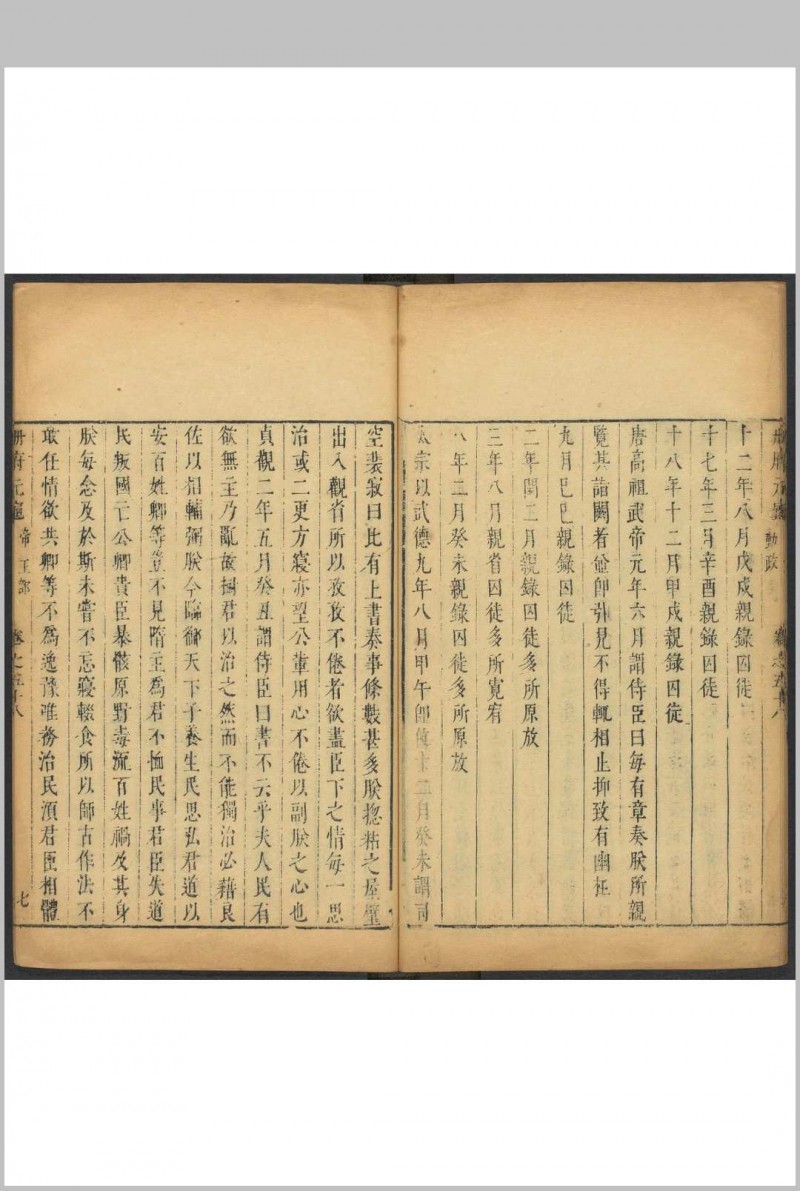 冊府元龜 勤政 卷之五十八
十二年八月戊戌親錄囚徒
十七年三月辛酉親錄囚徒
十八年十二月甲戌親錄囚徒
唐高祖武帝元年六月謂侍臣曰每有章奏朕所親
覽其詣闕者並即引見不得輒相止抑致有幽枉
九月巳巳親錄囚徒
二年閏二月親錄囚徒多所原放
三年八月親省囚徒多所寬宥
八年二月癸未親錄囚徒多所原放
太宗以武德九年八月甲午即位十二月癸未謂司
空裴寂曰比有上書奏事條數甚多朕揔粘之屋壁
出入觀省所以孜孜不倦者欲盡臣下之情每一思
治或二更方寢亦望公輩用心不倦以副朕之心也
貞觀二年五月癸丑謂侍臣曰書不云乎夫人民有
欲無主乃亂故樹君以治之然而不能獨治必藉良
佐以相輔弼朕今臨御天下子養生民思弘君道以
安百姓卿等豈不見隋主為君不恤民事君臣失道
民叛國亡公卿貴臣暴骸原野毒流百姓禍及其身
朕每念及於斯未嘗不忘寢輟食所以師古作法不
敢任情欲共卿等不為逸豫唯務治民須君臣相體
冊府元龜 帝王部 卷之五十八 七